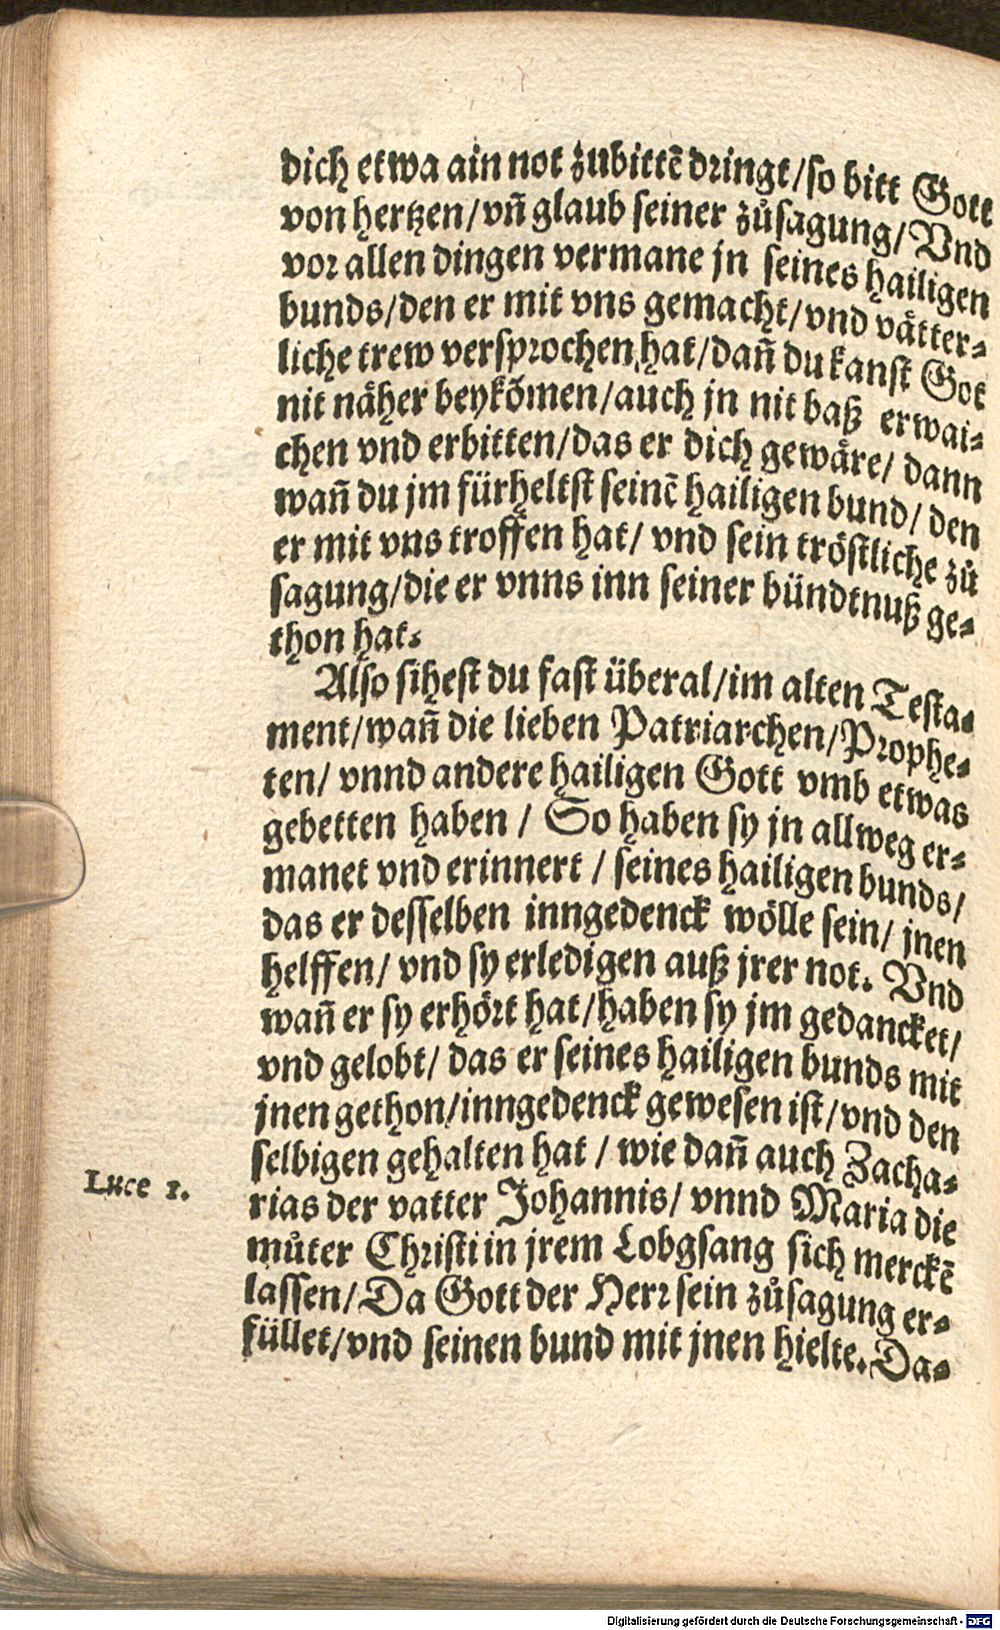 dich etwa ain not zubittē dringt/so bitt Gott
von hertzen/vn̄ glaub seiner zůsagung/Vnd
vor allen dingen vermane jn seines hailigen
bunds/den er mit vns gemacht/vnd vätter⸗
liche trew versprochen hat/dan̄ du kanst Got
nit näher beykōmen/auch jn nit baß erwai⸗
chen vnd erbitten/das er dich gewäre/ dann
wan̄ du jm fürheltst seinē hailigen bund/ den
er mit vns troffen hat/ vnd sein tröstliche zů
sagung/die er vnns inn seiner bündtnuß ge⸗
thon hat.
Also sihest du fast überal/im alten Testa⸗
ment/wan̄ die lieben Patriarchen/Prophe⸗
ten/ vnnd andere hailigen Gott vmb etwas
gebetten haben / So haben sy jn allweg er⸗
manet vnd erinnert / seines hailigen bunds/
das er desselben inngedenck wölle sein/ jnen
helffen/ vnd sy erledigen auß jrer not. Vnd
wan̄ er sy erhört hat/haben sy jm gedancket/
vnd gelobt/ das er seines hailigen bunds mit
jnen gethon/inngedenck gewesen ist/vnd den
selbigen gehalten hat / wie dan̄ auch Zacha⸗
Luce 1.
rias der vatter Johannis/ vnnd Maria die
můter Christi in jrem Lobgsang sich merckē
lassen/Da Gott der Herr sein zůsagung er⸗
füllet/vnd seinen bund mit jnen hielte. Da⸗
Digitalisierung gefördert durch die Deutsche Forschungsgemeinschaft - DFG